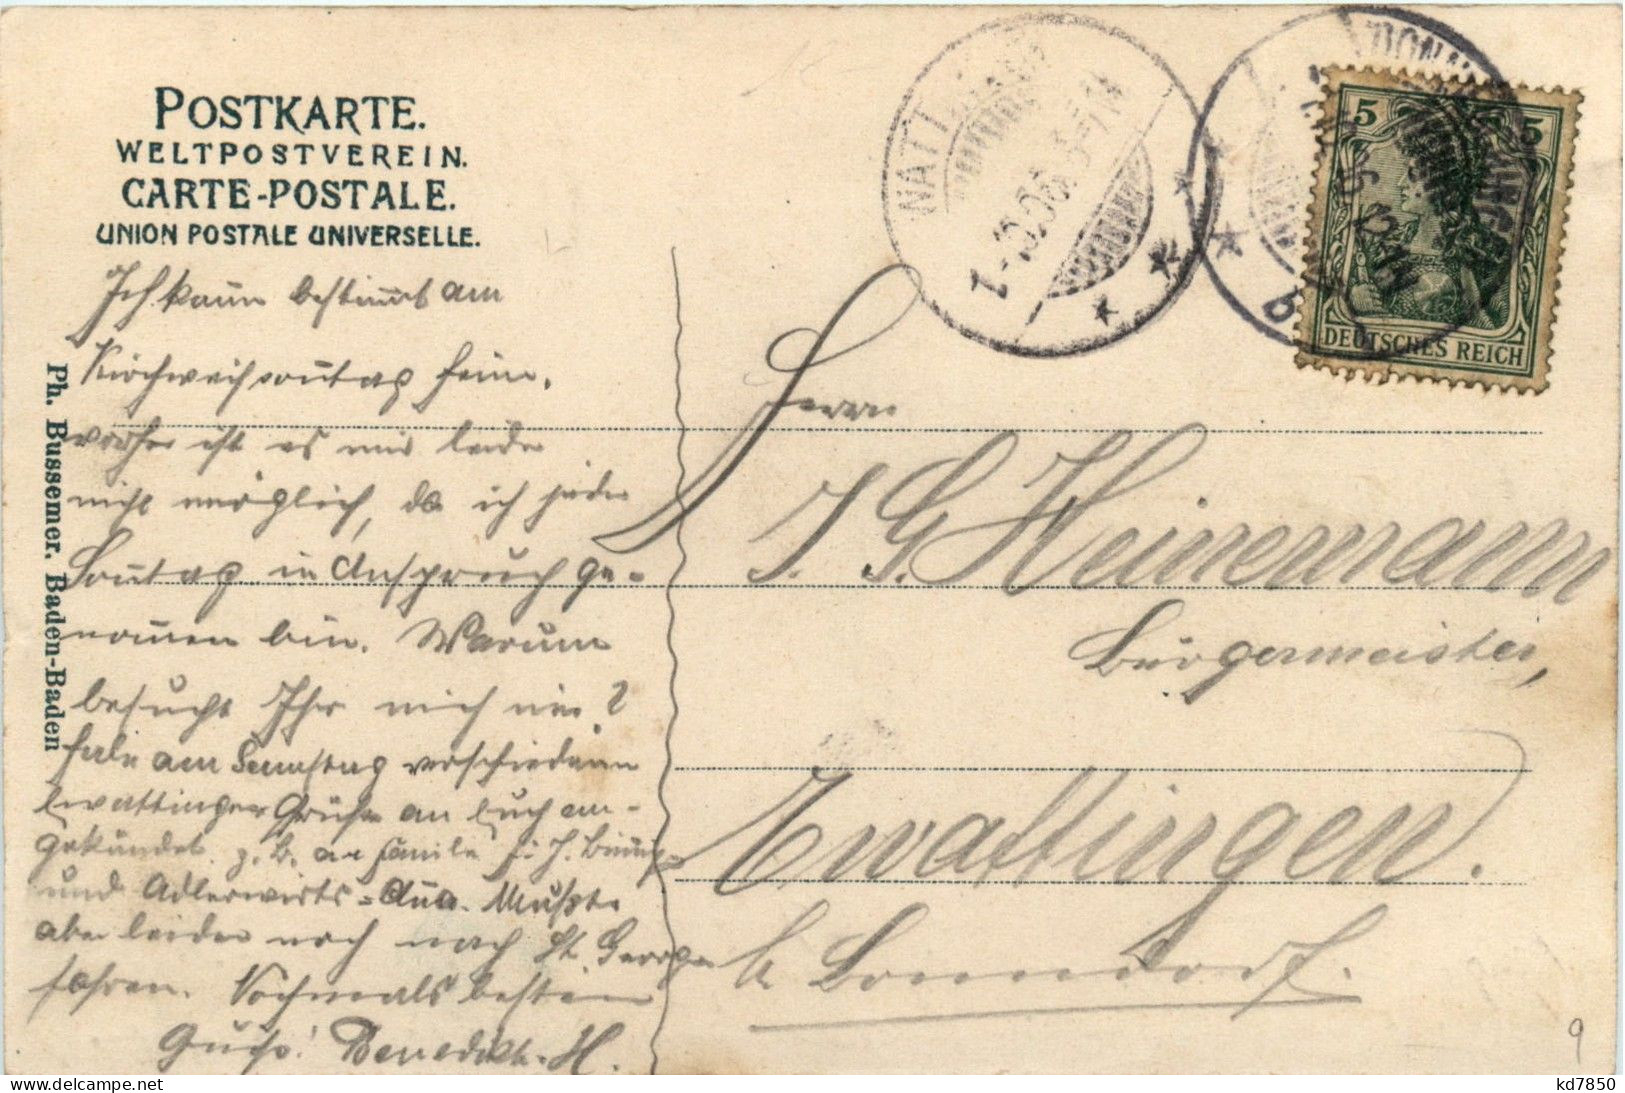 POSTKARTE.
WELTPOSTVEREIN.
CARTE-POSTALE.
UNION POSTALE UNIVERSELLE.
Ph. Bussemer, Baden-Baden
Ich kaun̄ bestim̄t am
Kirchweihsontag heim,
vorher ist es mir leider
nicht möglich, da ich jeden
Sontag in Anspruch ge-
nom̄en bin. Warum
besucht Ihr mich nie?
habe am Samstag verschiedenen
Ewattinger Grüße an Euch an-
gekündet z. B. an Familie
und Adlerwirts- Mußte
aber leider noch nach St. Georgen
fahren. Nochmals besten
Gruß! Benedikt. H.
NATT
1.-10.06. 5-6N
DON
b
5 5
DEUTSCHES REICH
Herrn
J. G. Heinemann
Bürgermeister,
Ewattingen.
b. Bonndorf.
9
kd7850